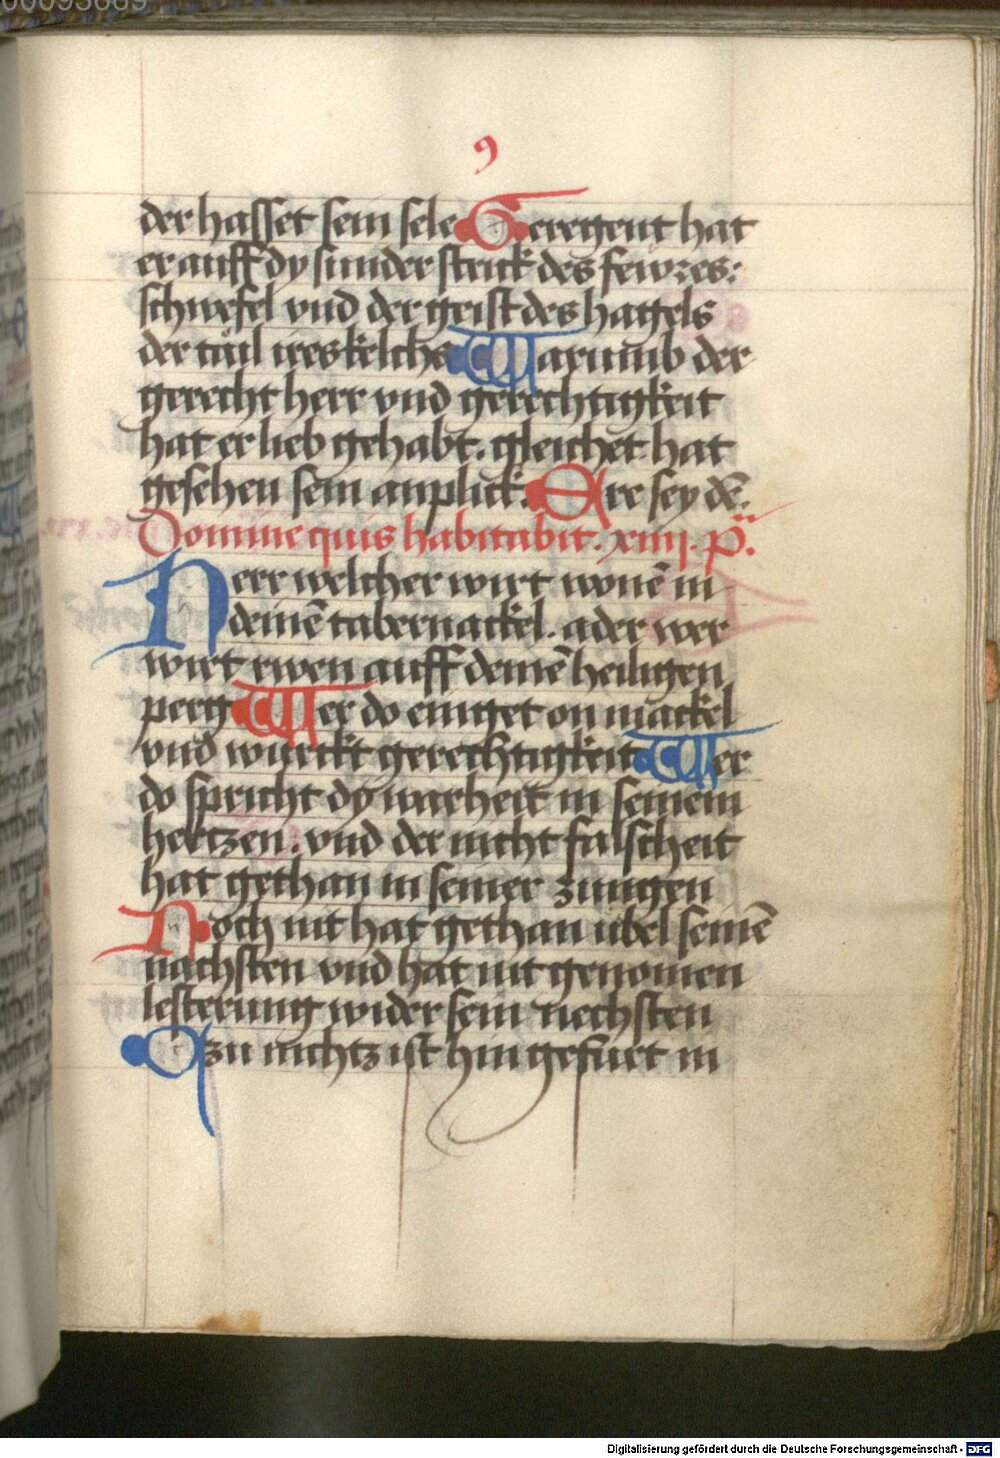 00093689
9
der hasset sein sele Geregent hat
er auff dy sunder strick des fewres:
schwefel vnd der geist des hagels
der tail ires kelchs Warumb der
gerecht herr vnd gerechtigkeit
hat er lieb gehabt. gleichet hat
gesehen sein anplick. Ere sey dē.
Domine quis habitabit. xiiij. p̄.
Herr welcher wirt wonē in
deinē tabernackel. ader wer
wirt rwen auff deinē heiligen
perg Wer do einget on mackel
vnd wurckt gerechtigkeit Wer
do spricht dy warheit in seinem
hertzen. vnd der nicht falscheit
hat gethan in seiner zungen
Noch nit hat gethan übel seinē
nächsten vnd hat nit genomen
lesterung wider sein nechsten
Czu nichtz ist hin gefürt in
Digitalisierung gefördert durch die Deutsche Forschungsgemeinschaft - DFG